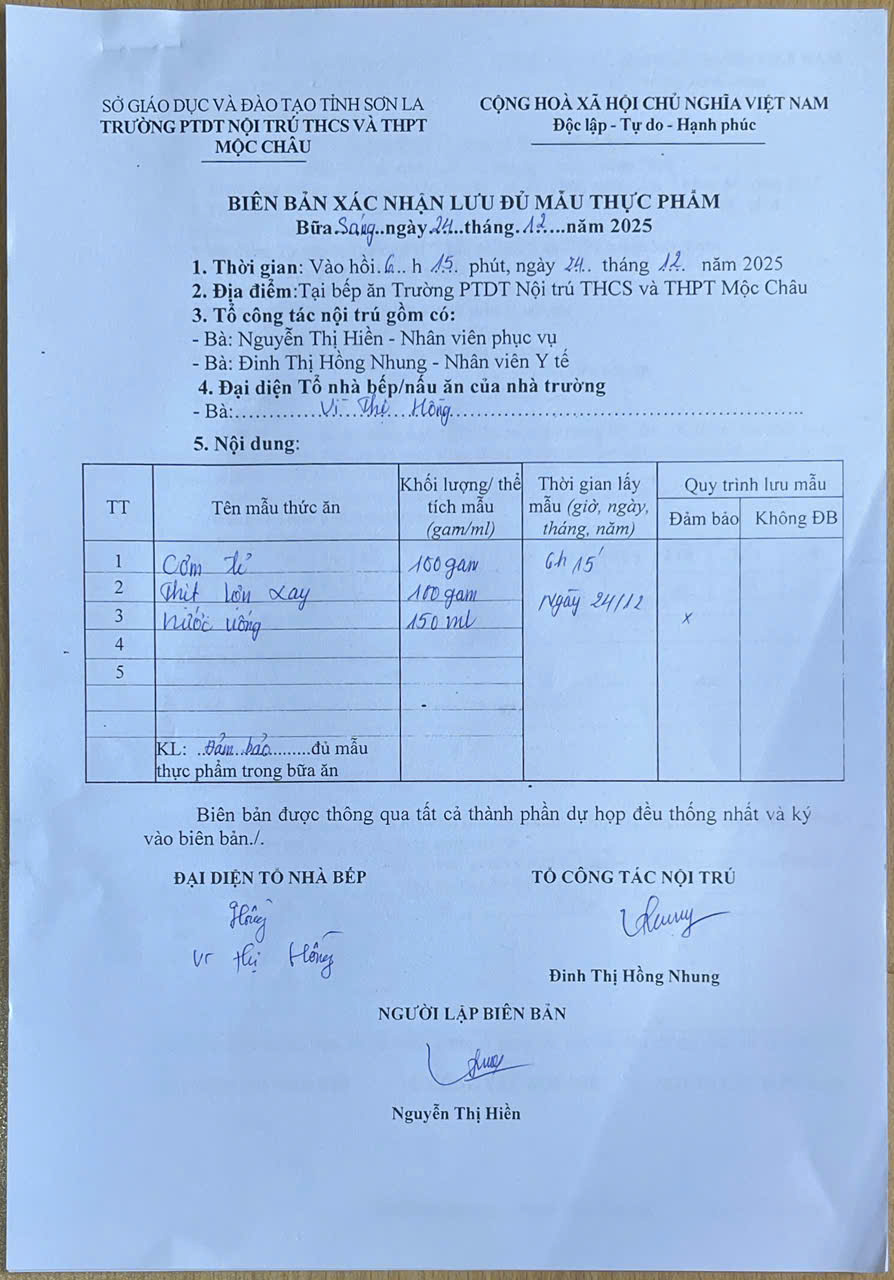 SỞ GIÁO DỤC VÀ ĐÀO TẠO TỈNH SƠN LA
TRƯỜNG PTDT NỘI TRÚ THCS VÀ THPT
MỘC CHÂU
CỘNG HOÀ XÃ HỘI CHỦ NGHĨA VIỆT NAM
Độc lập - Tự do - Hạnh phúc
BIÊN BẢN XÁC NHẬN LƯU ĐỦ MẪU THỰC PHẨM
Bữa.Sáng..ngày.24..tháng.12....năm 2025
1. Thời gian: Vào hồi.6.. h 15. phút, ngày 24.. tháng 12. năm 2025
2. Địa điểm:Tại bếp ăn Trường PTDT Nội trú THCS và THPT Mộc Châu
3. Tổ công tác nội trú gồm có:
- Bà: Nguyễn Thị Hiền - Nhân viên phục vụ
- Bà: Đinh Thị Hồng Nhung - Nhân viên Y tế
4. Đại diện Tổ nhà bếp/nấu ăn của nhà trường
- Bà:............Vì Thị Hồng............
5. Nội dung:
TT Tên mẫu thức ăn Khối lượng/ thể tích mẫu (gam/ml) Thời gian lấy mẫu (giờ, ngày, tháng, năm) Quy trình lưu mẫu
Đảm bảo Không ĐB
1 Cơm tẻ 100gam 6h 15'
2 Thịt lợn xay 100gam Ngày 24/12
3 Nước uống 150ml x
4
5
KL: ..Đảm bảo.........đủ mẫu
thực phẩm trong bữa ăn
Biên bản được thông qua tất cả thành phần dự họp đều thống nhất và ký
vào biên bản./.
ĐẠI DIỆN TỔ NHÀ BẾP
Hồng
Vì Thị Hồng
TỔ CÔNG TÁC NỘI TRÚ
Đinh Thị Hồng Nhung
NGƯỜI LẬP BIÊN BẢN
Nguyễn Thị Hiền